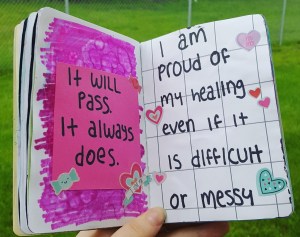 It will
pass.
It always
does.
I am
proud of
my healing
even if it
is difficult
or messy